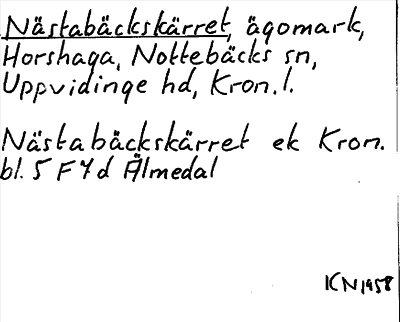 Nästabäckskärret, ägomark,
Horshaga, Nottebäcks sn,
Uppvidinge hd, Kron.l.
Nästabäckskärret ek Kron.
bl. 5 F 7 d Älmedal
KN 1958